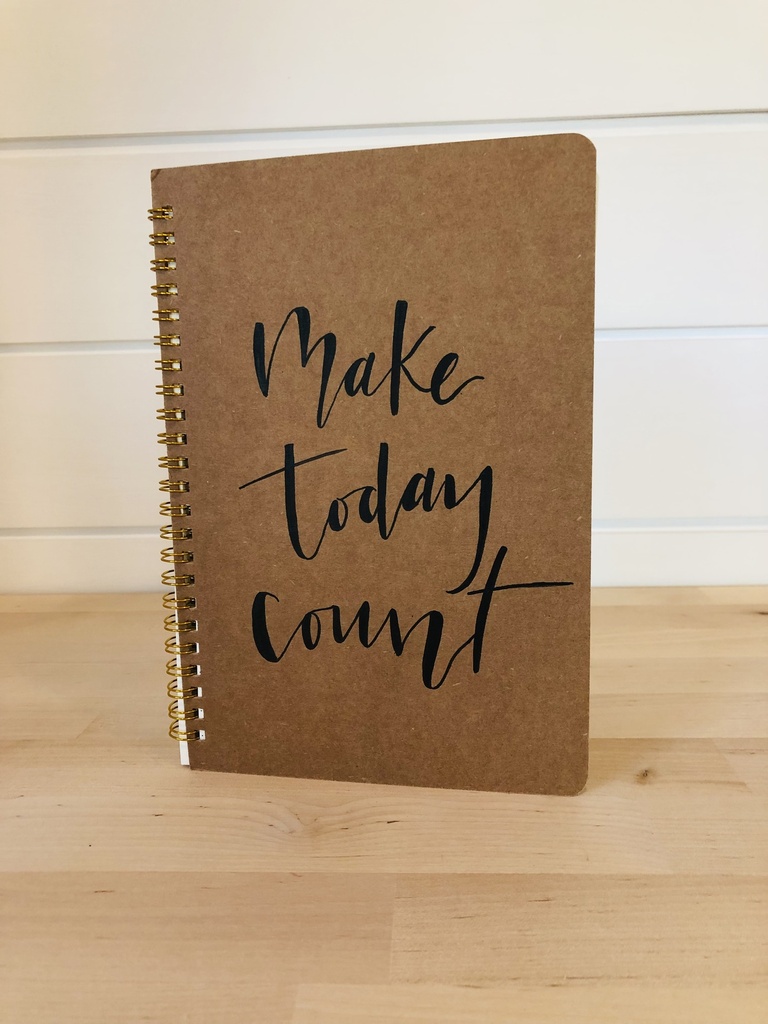 Make
today
count